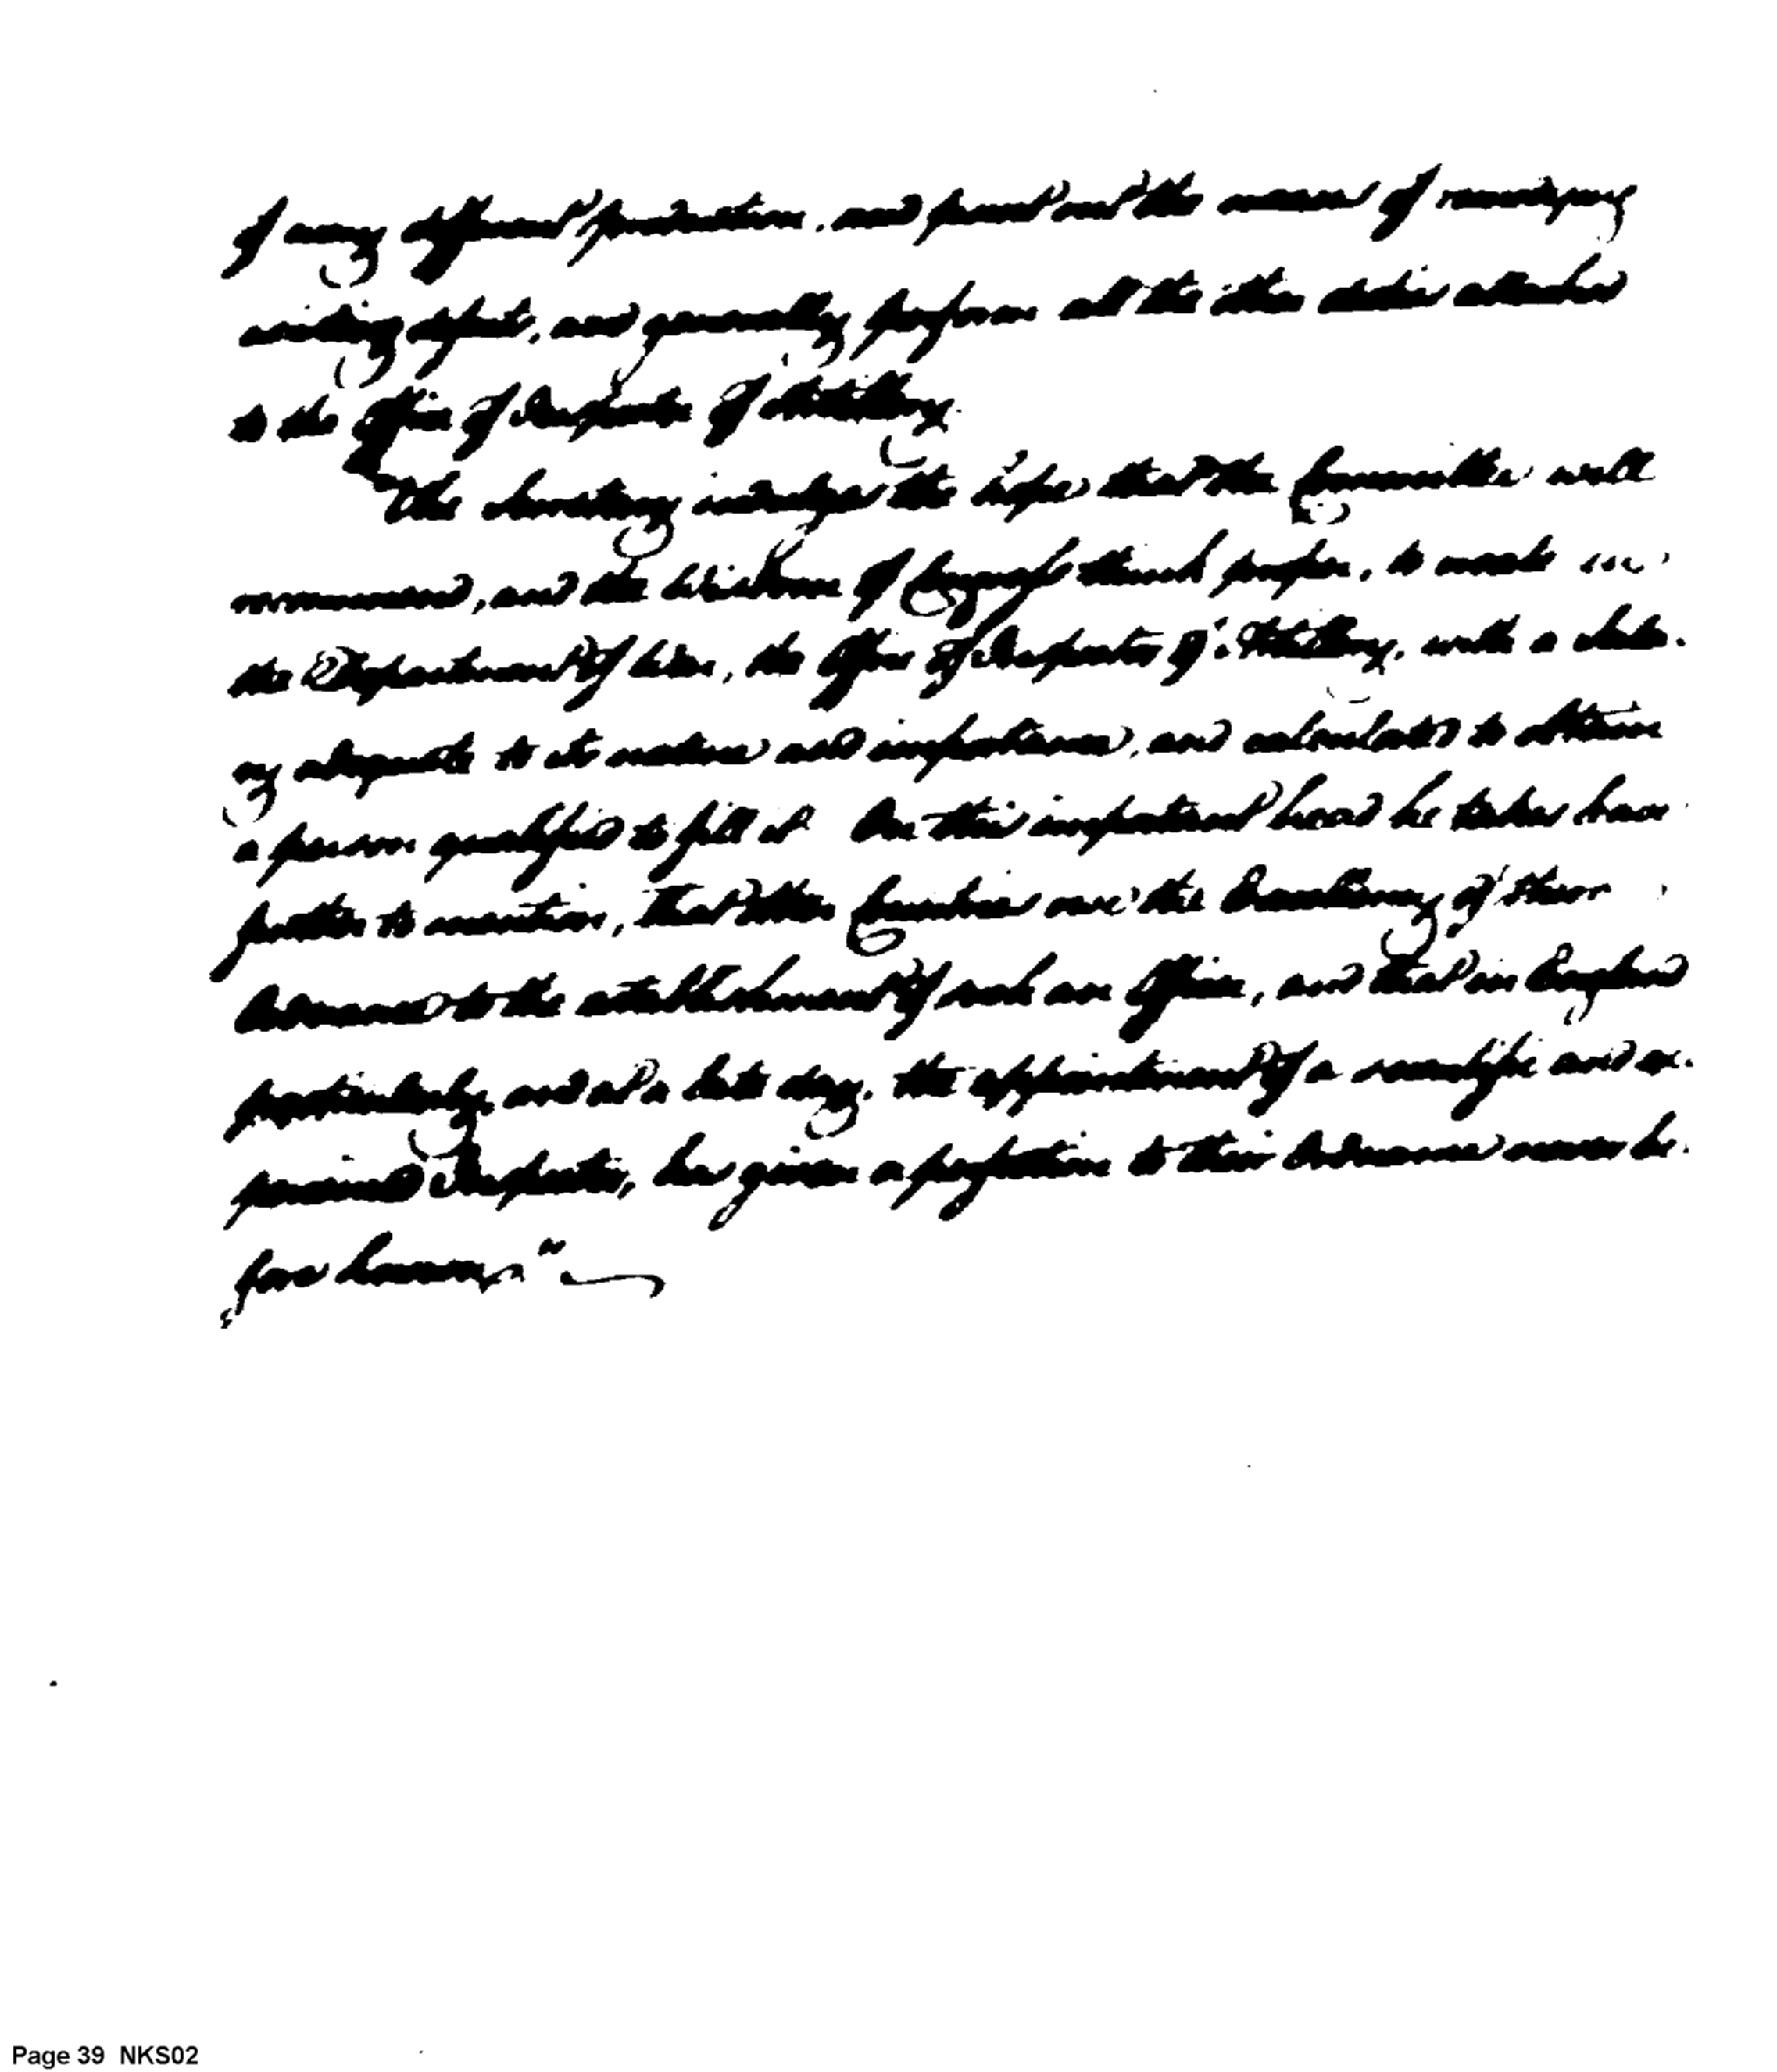 of every different production, and point out the means of remedying
existing defects, and generally perform all the other duties attached
to the office of Inspector of Artillery.
The Secretary indulges the hope that the Committee will
recommend, and the wisdom of Congress think proper, to create in
the Department of War, the office of Inspector of Artillery, with a
adequate to its nature and importance, and calculated to obtain
a person qualified to fill it. On this important head he takes
to mention, that the Founderies are the of them
to the establishment of such an office, and that in England
particularly, and at a late day, the appointment of a scientific and ex-
perienced Inspector, has given a perfection to their unknown be-
fore known."
Page 39 NKS02